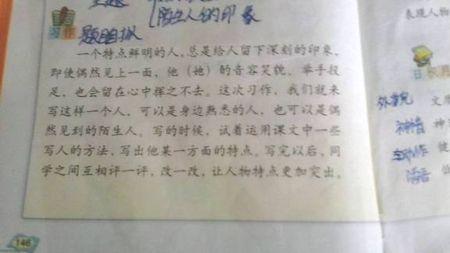 陌生人的印象
表现人物
习作
题目自拟
一个特点鲜明的人，总是给人留下深刻的印象，
即使偶然见上一面，他（她）的音容笑貌、举手投
足，也会留在心中挥之不去。这次习作，我们就来
写这样一个人，可以是身边熟悉的人，也可以是偶
然见到的陌生人。写的时候，试着运用课文中一些
写人的方法，写出他某一方面的特点。写完以后，同
学之间互相评一评，改一改，让人物特点更加突出。
日
神
146